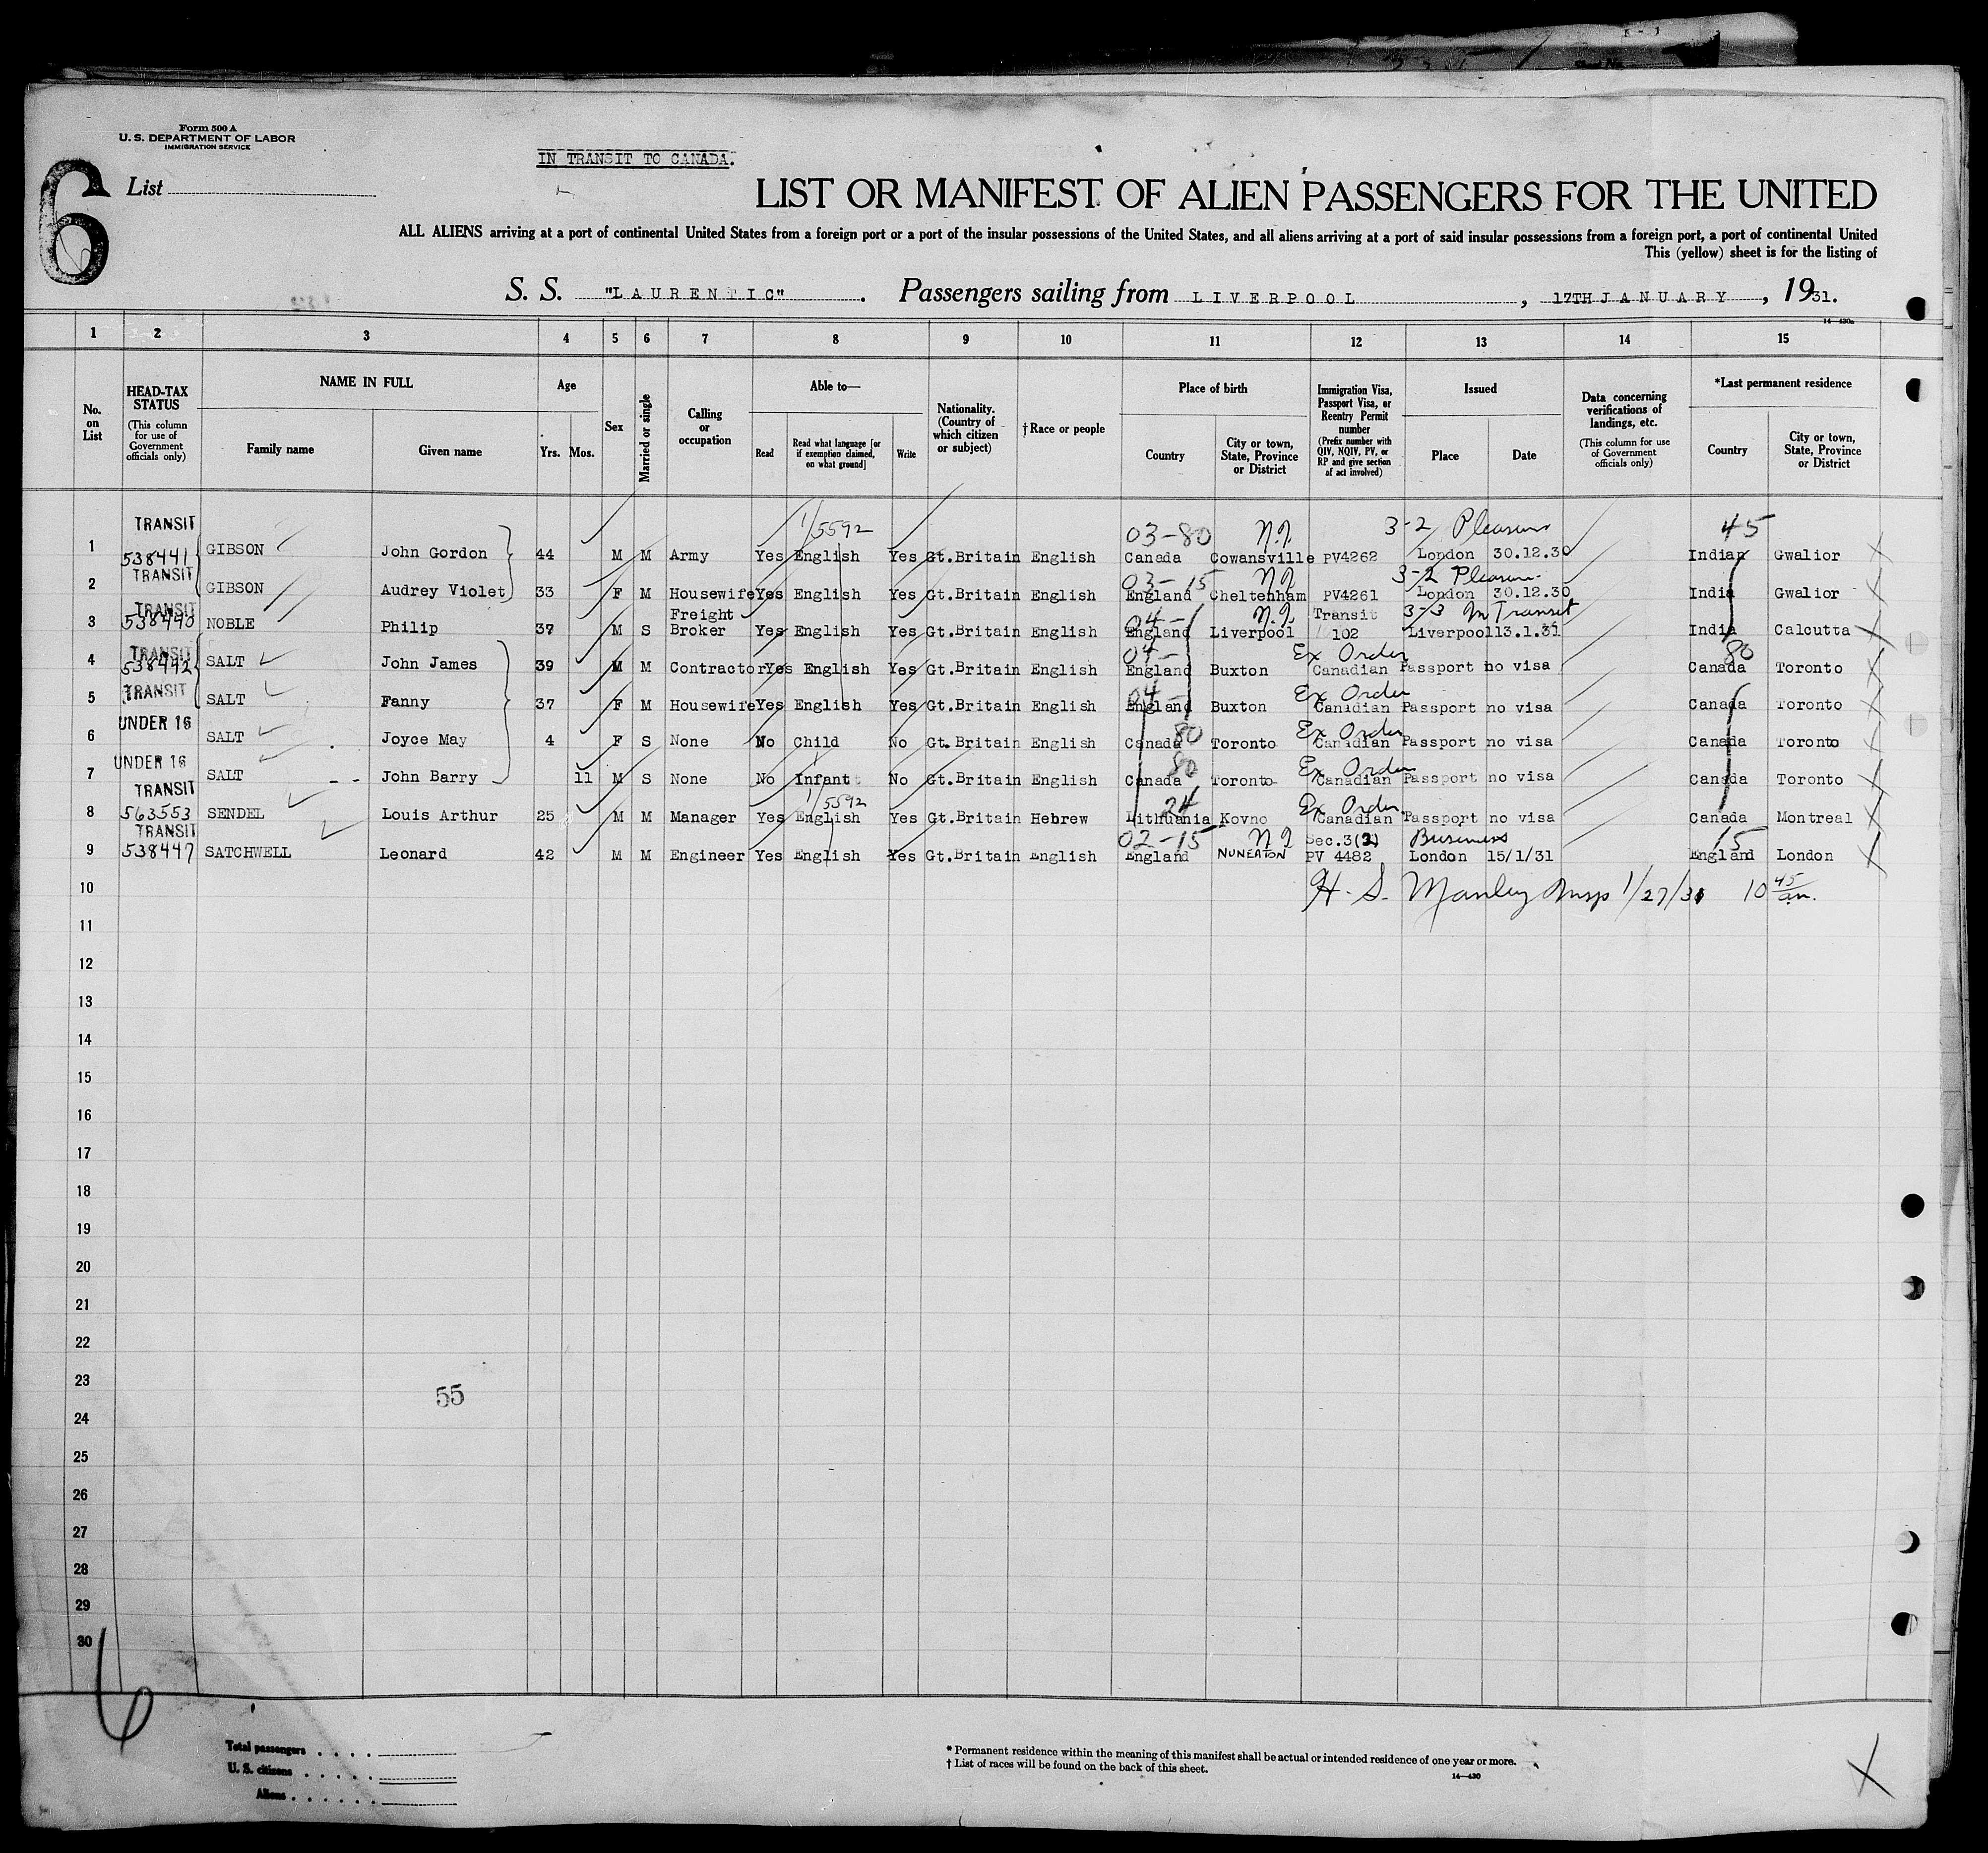 Form 500 A
U. S. DEPARTMENT OF LABOR
IMMIGRATION SERVICE
6
List
IN TRANSIT TO CANADA.
LIST OR MANIFEST OF ALIEN PASSENGERS FOR THE UNITED
ALL ALIENS arriving at a port of continental United States from a foreign port or a port of the insular possessions of the United States, and all aliens arriving at a port of said insular possessions from a foreign port, a port of continental United
This (yellow) sheet is for the listing of
S. S. "LAURENTIC" . Passengers sailing from LIVERPOOL , 17TH JANUARY , 1931.
14—430a
1 2 3 4 5 6 7 8 9 10 11 12 13 14 15
No. on List
HEAD-TAX STATUS (This column for use of Government officials only)
NAME IN FULL
Family name Given name
Age
Yrs. Mos.
Sex
Married or single
Calling or occupation
Able to—
Read Read what language [or if exemption claimed, on what ground] Write
Nationality. (Country of which citizen or subject)
†Race or people
Place of birth
Country City or town, State, Province or District
Immigration Visa, Passport Visa, or Reentry Permit number (Prefix number with QIV, NQIV, PV, or RP and give section of act involved)
Issued
Place Date
Data concerning verifications of landings, etc. (This column for use of Government officials only)
*Last permanent residence
Country City or town, State, Province or District
TRANSIT 1/5592 03-80 N.I. 3-2 Pleasure 45
1 538441 GIBSON John Gordon 44 M M Army Yes English Yes Gt.Britain English Canada Cowansville PV4262 London 30.12.30 Indian Gwalior
TRANSIT 03-15 N.I. 3-2 Pleasure
2 GIBSON Audrey Violet 33 F M Housewife Yes English Yes Gt.Britain English England Cheltenham PV4261 London 30.12.30 India Gwalior
TRANSIT Freight 04- N.I. Transit 3-3 In Transit
3 538440 NOBLE Philip 37 M S Broker Yes English Yes Gt.Britain English England Liverpool 102 Liverpool 13.1.31 India Calcutta
TRANSIT 04- Ex Order 80
4 538442 SALT John James 39 M M Contractor Yes English Yes Gt.Britain English England Buxton Canadian Passport no visa Canada Toronto
TRANSIT 04- Ex Order
5 SALT Fanny 37 F M Housewife Yes English Yes Gt.Britain English England Buxton Canadian Passport no visa Canada Toronto
UNDER 16 80 Ex Order
6 SALT Joyce May 4 F S None No Child No Gt.Britain English Canada Toronto Canadian Passport no visa Canada Toronto
UNDER 16 80 Ex Order
7 SALT John Barry 11 M S None No Infant No Gt.Britain English Canada Toronto Canadian Passport no visa Canada Toronto
TRANSIT 1/5592 24 Ex Order
8 563553 SENDEL Louis Arthur 25 M M Manager Yes English Yes Gt.Britain Hebrew Lithuania Kovno Canadian Passport no visa Canada Montreal
TRANSIT 02-15 N I Sec.3(2) Business 15
9 538447 SATCHWELL Leonard 42 M M Engineer Yes English Yes Gt.Britain English England NUNEATON PV 4482 London 15/1/31 England London
10 H. S. Manley Insp 1/27/31 10 45 am.
11
12
13
14
15
16
17
18
19
20
21
22
23
55
24
25
26
27
28
29
30
6
Total passengers
U. S. citizens
Aliens
* Permanent residence within the meaning of this manifest shall be actual or intended residence of one year or more.
† List of races will be found on the back of this sheet.
14—430